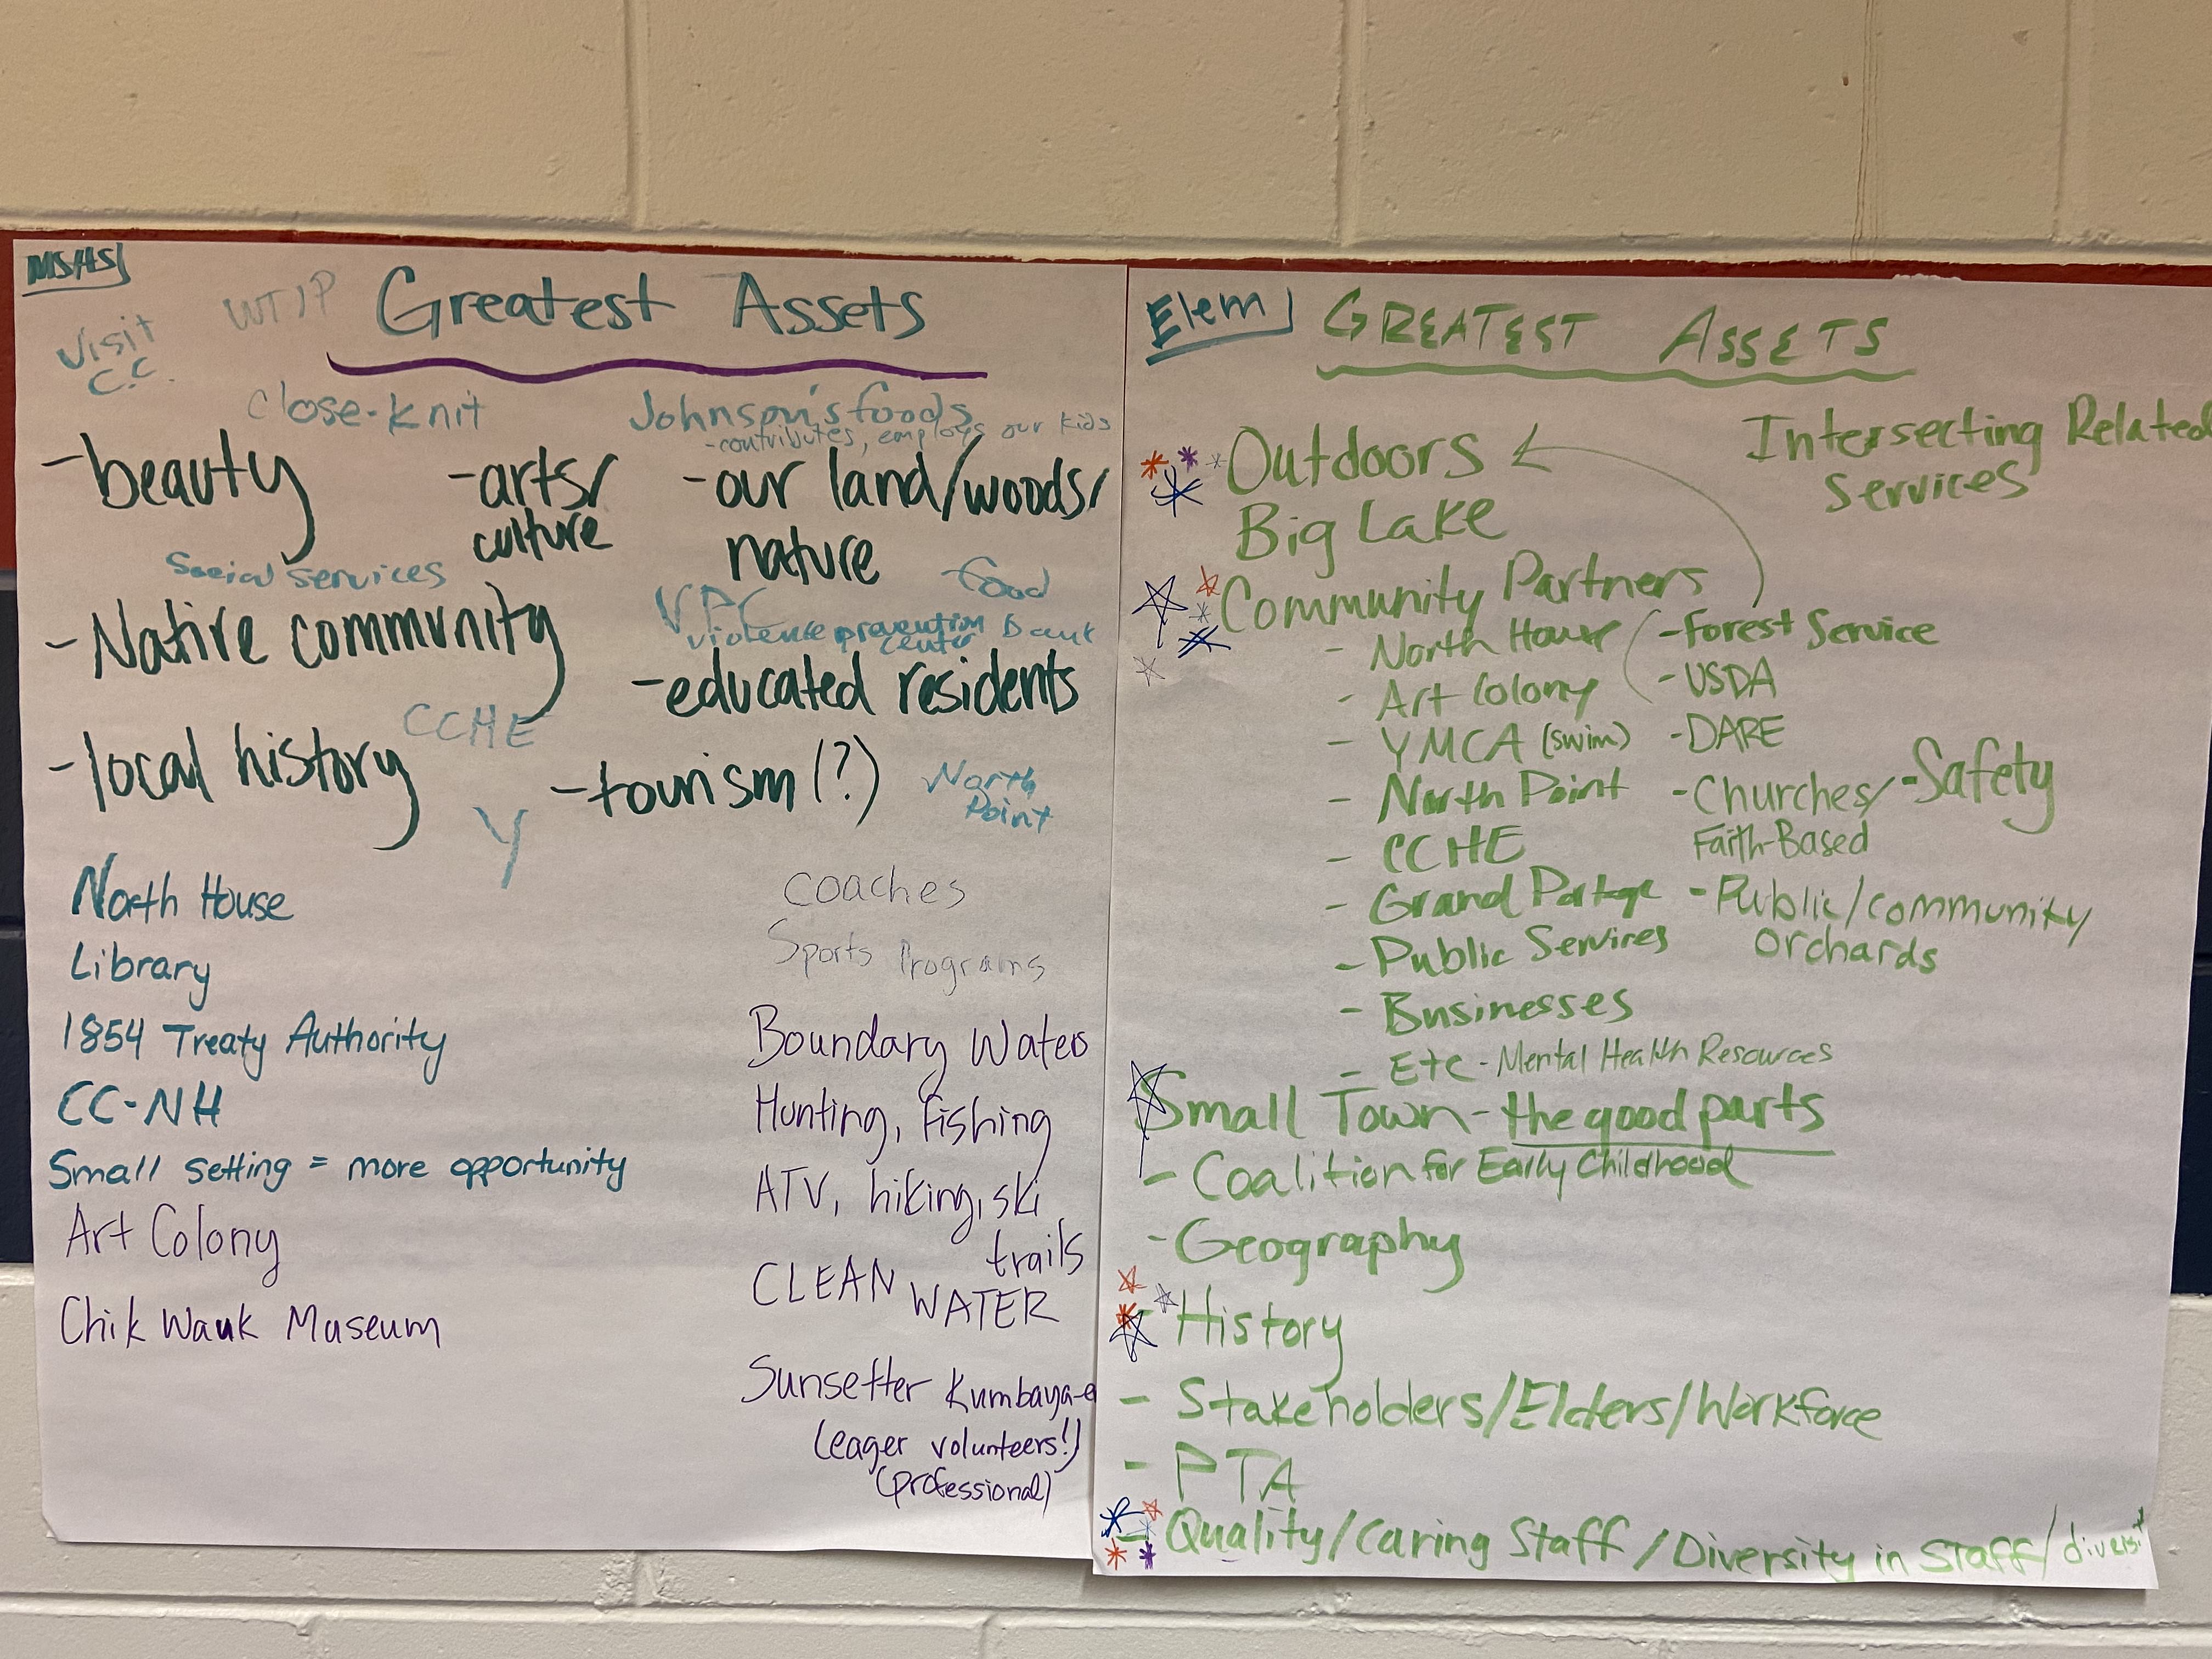 MSHS
WTIP
Greatest Assets
Visit
C.C.
Close-knit
Johnson's foods
-contributes, employs our kids
-beauty
-arts/
culture
-our land/woods/
nature
Social services
food
Bank
VPC
violence prevention
center
-Native community
-educated residents
CCHE
-local history
-tourism (?)
North
Point
Y
North House
Library
1854 Treaty Authority
CC-NH
Small setting = more opportunity
Art Colony
Chik Wauk Museum
Coaches
Sports Programs
Boundary Waters
Hunting, Fishing
ATV, hiking, ski
trails
CLEAN WATER
Sunsetter Kumbaya-e
(eager volunteers!)
(professional)
Elem
GREATEST ASSETS
Intersecting Related
Services
Outdoors
Big Lake
Community Partners
- North House
- Art Colony
- YMCA (swim)
- North Point
- CCHE
- Grand Portage
- Public Services
- Businesses
- Etc - Mental Health Resources
-Forest Service
-USDA
-DARE
-Churches/
Faith-Based
-Safety
-Public/community
orchards
Small Town - the good parts
- Coalition for Early Childhood
- Geography
- History
- Stakeholders/Elders/Workforce
- PTA
- Quality/Caring Staff/Diversity in Staff/